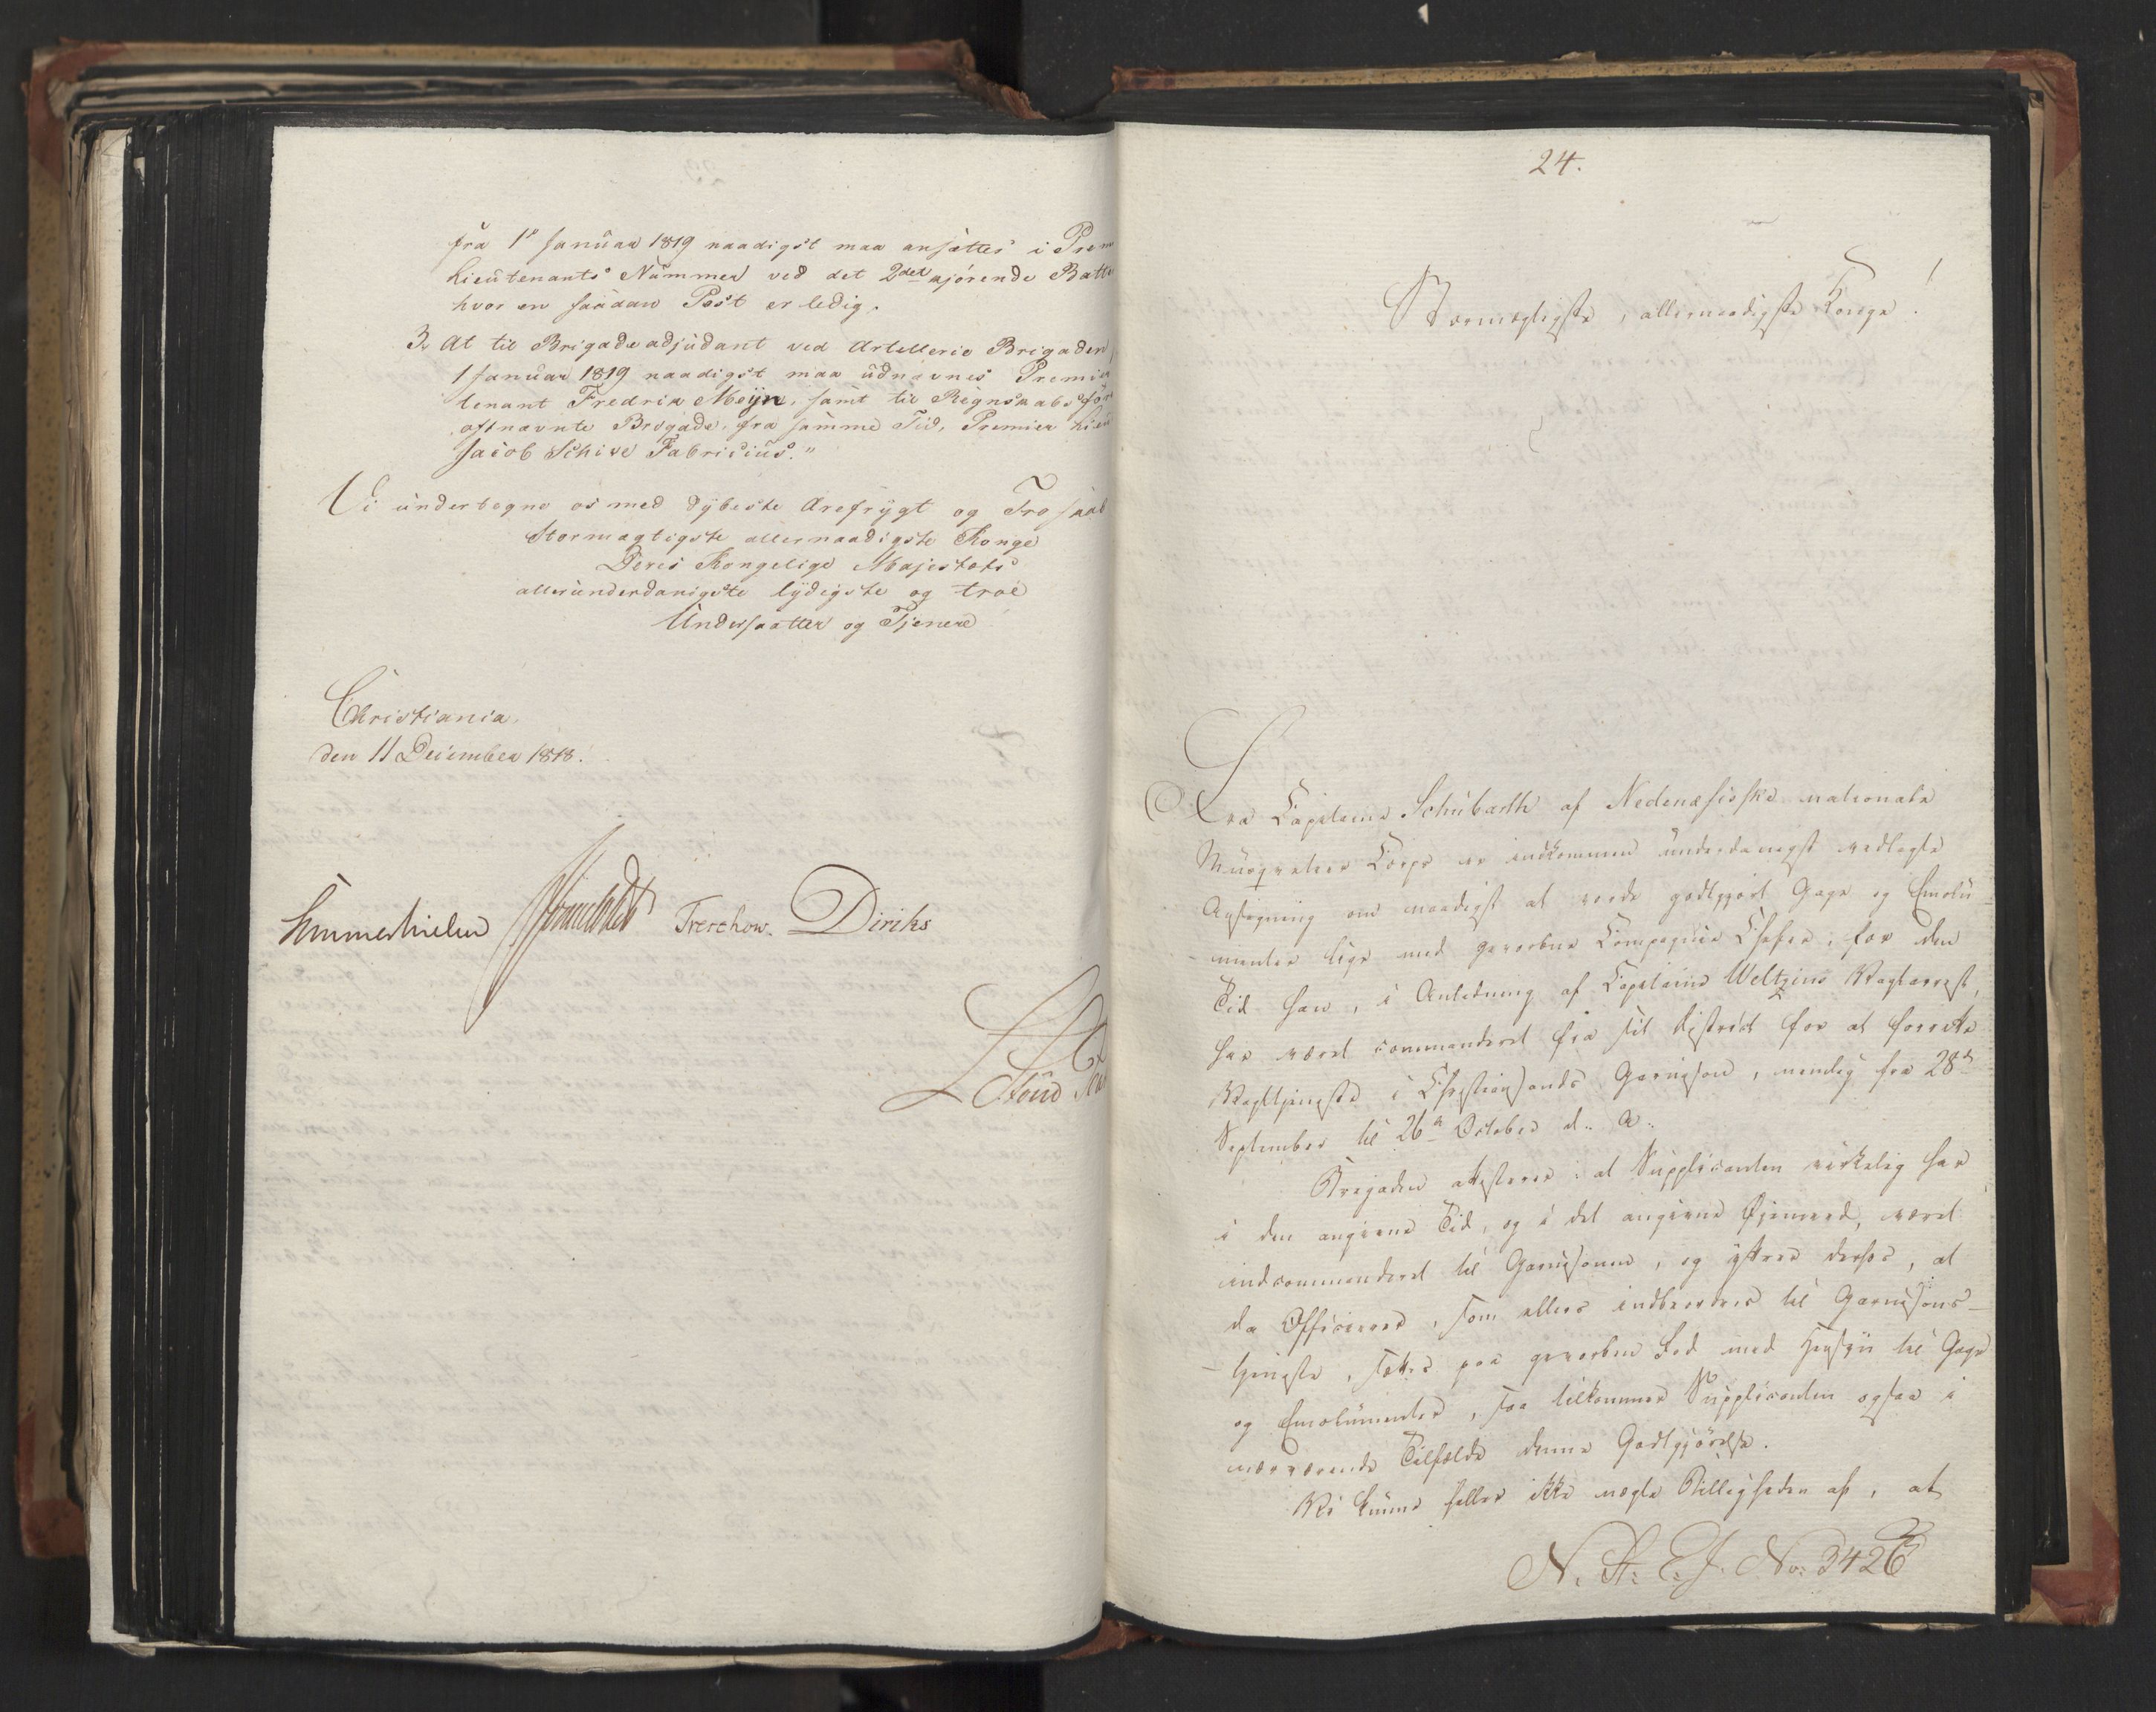 fra 1ste Januar 1819 naadigst maa ansættes i Prem
Lieutenants Nummer ved det 2det kjørende Batte
hvor en saadan Post er ledig.
3, At til Brigadeadjudant ved Artillerie Brigaden
1 Januar 1819 naadigst maa udnævnes Premier
tenant Fredrik Meijn, samt til Regnskabsfør
oftnævnte Brigade, fra samme Tid, Premier Lieu
Jacob Schive Fabricius."
Vi undertegne os med dybeste Ærefrygt og Troskab
Stormægtigste allernaadigste Konge
Deres Kongelige Majestæts
allerunderdanigste lydigste og troe
Undersaatter og Tjenere
Christiania,
den 11 December 1818.
Sommerhielm Treschow. Diriks
24.
Stormægtigste, allernaadigste Konge!
Fra Capitaine Schubarth af Nedenæsiske nationale
Musqueteer Corps er indkommen underdanigst vedlagte
Ansøgning om naadigst at vorde godtgjort Gage og Emolu-
-menter lige med gevorbne Compagnie Chefer, for den
Tid han, i Anledning af Capitaine Weltzins Vagtarrest,
har været commanderet fra sit District for at forrette
Vagttjeneste i Christiansands Garnison, nemlig fra 28de
September til 26de October d. A.
Brigaden attesterer: at Supplicanten virkelig har
i den angivne Tid, og i det angivne Øjemeed, været
indcommanderet til Garnisonen, og yttrer derhos, at
da Officierer, som ellers indbeordres til Garnisons-
-tjeneste, sættes paa gevorben Fod med Hensyn til Gage
og Emolumenter, saa tilkommer Supplicanten ogsaa i
nærværende Tilfælde denne Godtgjørelse.
Vi kunne heller ikke nægte Billigheden af, at
N. St. E. J. No: 3426